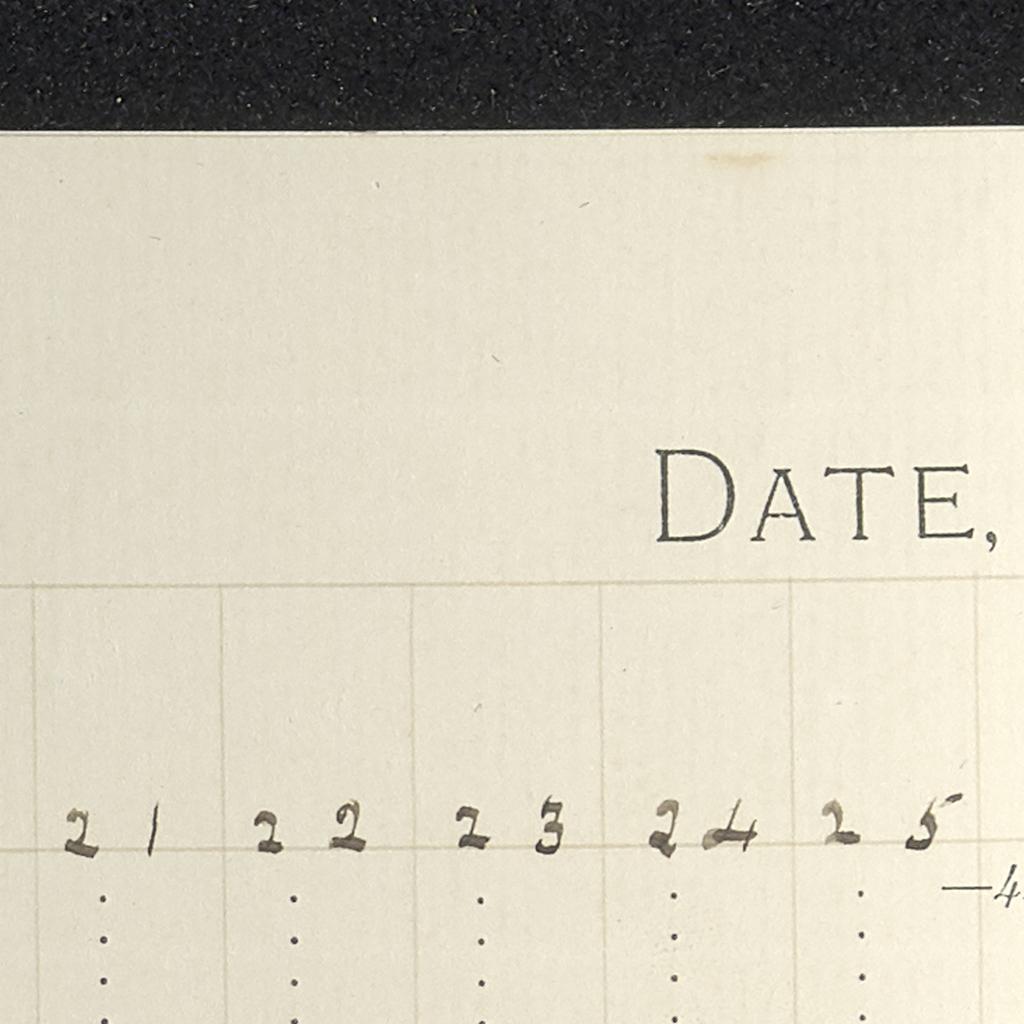 DATE,
21 22 23 24 25
—4